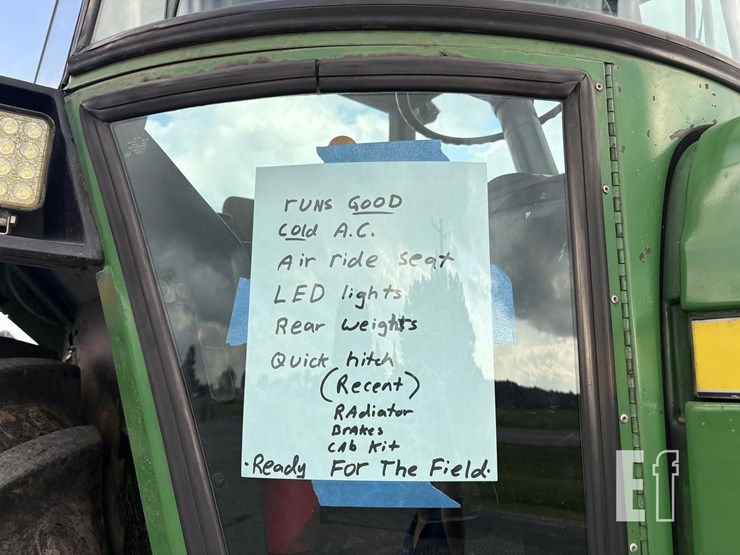 runs GOOD
Cold A.C.
Air ride seat
LED lights
Rear weights
Quick hitch
(Recent)
RAdiator
BrAkes
CAb Kit
·Ready For The Field·
Ef